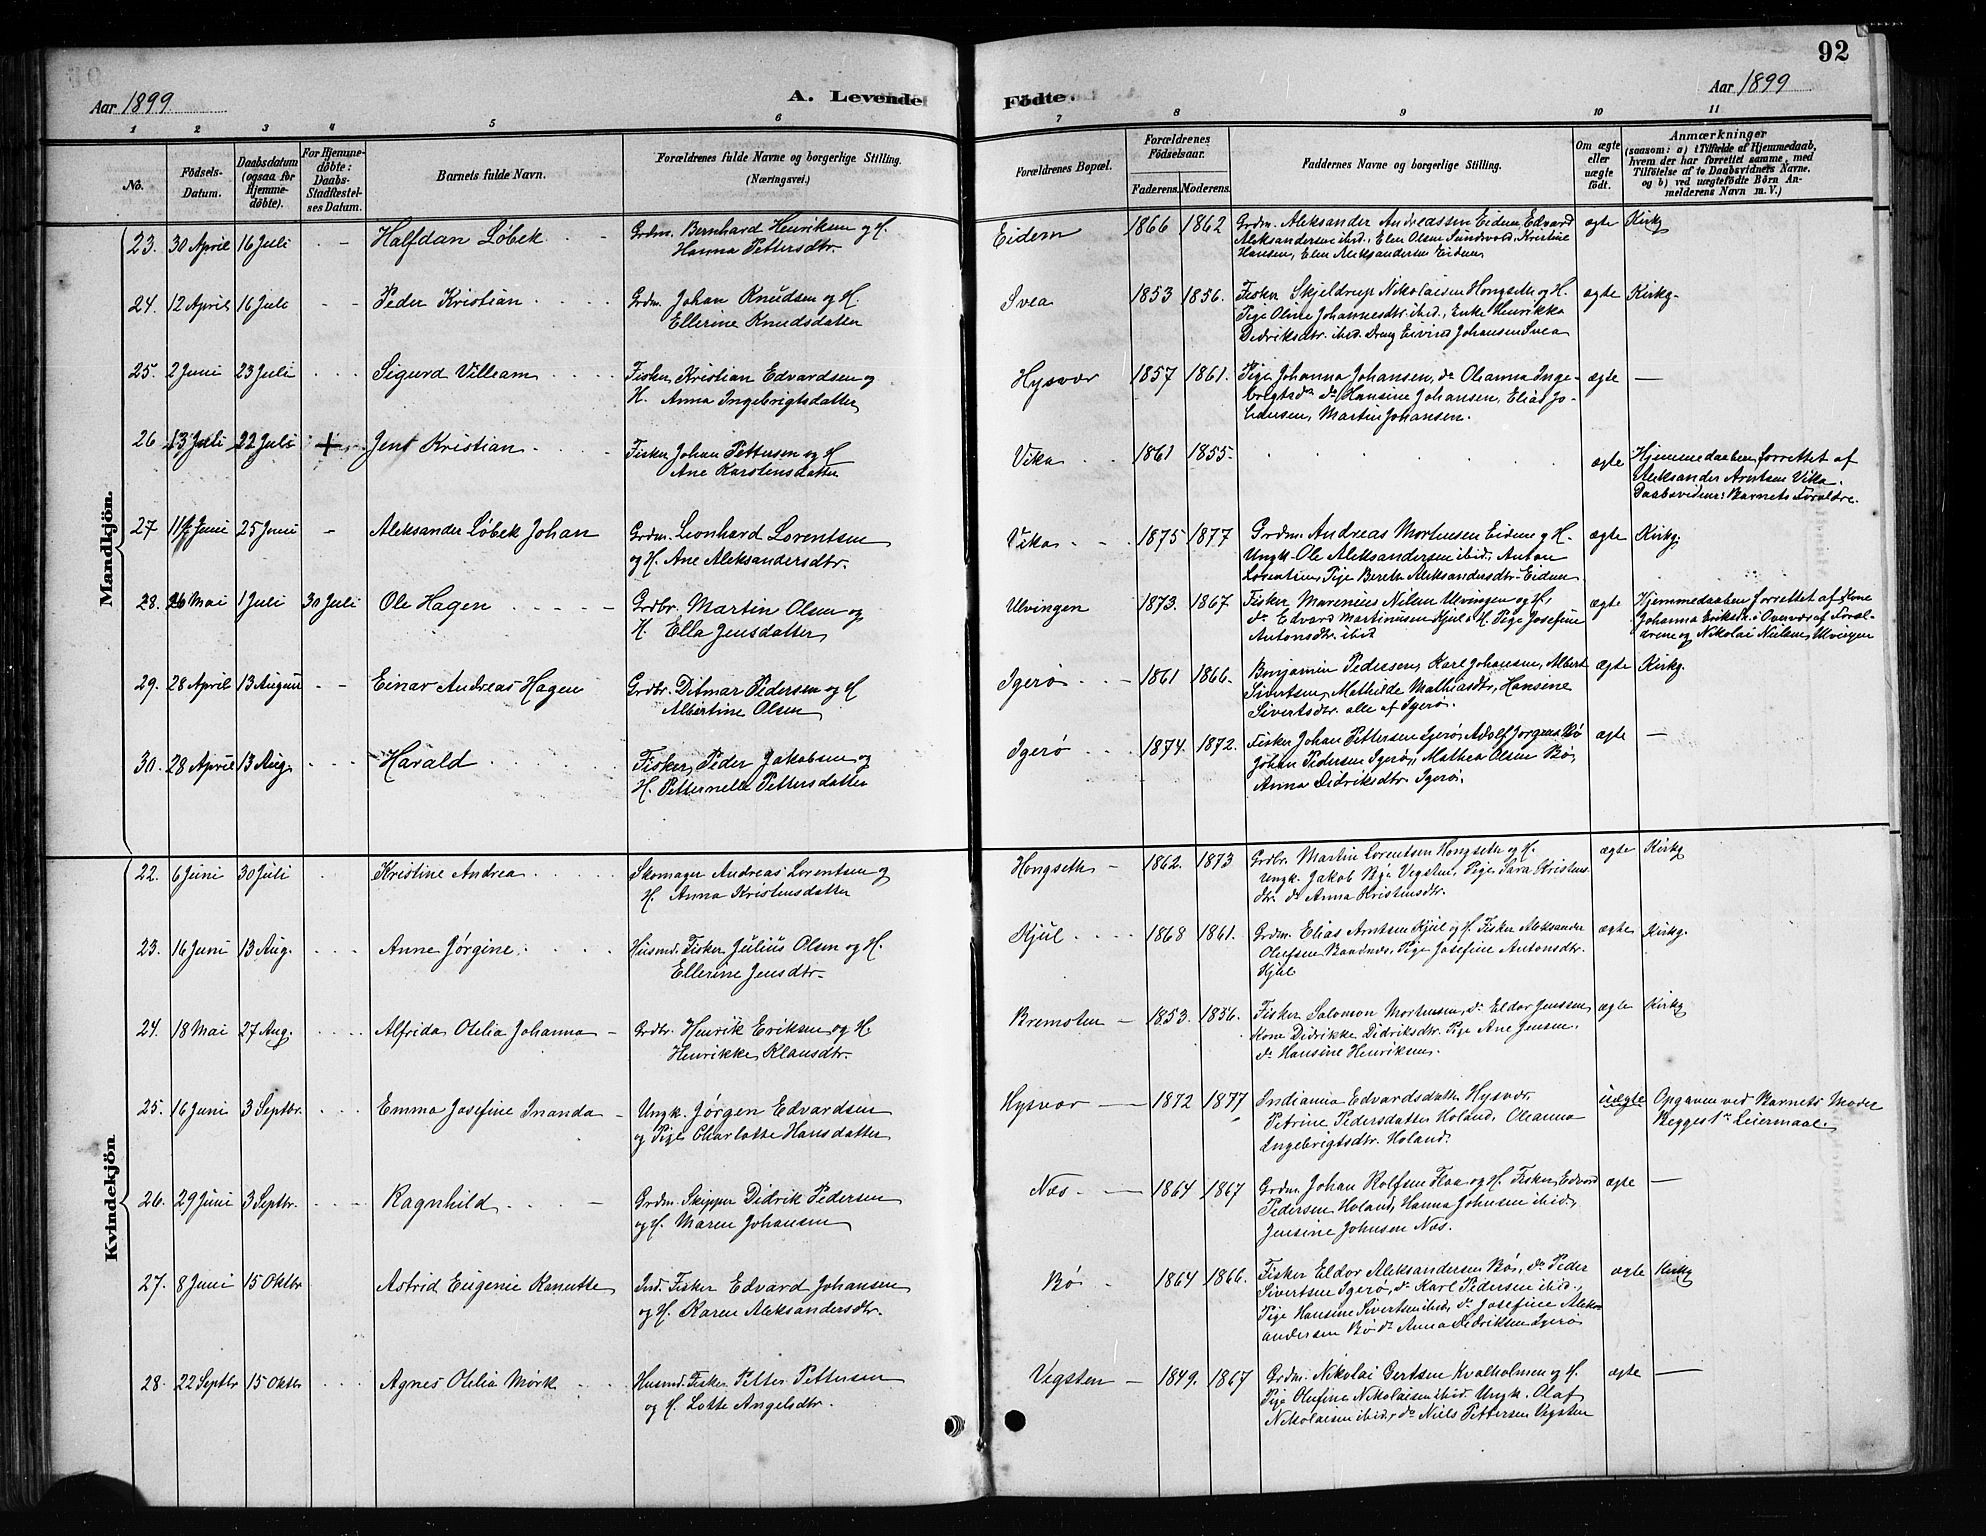 92
Aar 1899
A. Levende Födte.
Aar 1899
1 2 3 4 5 6 7 8 9 10 11
No.
Födsels-Datum.
Daabsdatum (ogsaa for Hjemme-döbte).
For Hjemme-döbte: Daabs-Stadfæstel-ses Datum.
Barnets fulde Navn.
Forældrenes fulde Navne og borgerlige Stilling. (Næringsvei.)
Forældrenes Bopæl.
Forældrenes Födselsaar.
Faderens. Moderens.
Faddernes Navne og borgerlige Stilling.
Om ægte eller uægte födt.
Anmærkninger
(saasom: a) i Tilfælde af Hjemmedaab, hvem der har forrettet samme, med Tilföielse af to Daabsvidners Navne, og b) ved uægtefödte Börn Anmelderens Navn m. V.)
Mandkjön.
23. 30 April 16 Juli - Halfdan Løbek Grdm. Bernhard Henriksen og H. Eidem 1866 1862 Grdm. Aleksander Andreassen Eidem, Edvard ægte Kirkg
Hanna Pettersdtr. Aleksandersen ibid., Elen Olsen Sundvold, Kristine
Hansen, Elen Aleksandersen Eidem
24. 12 April 16 Juli - - Peder Kristian Grdm. Johan Knudsen og H. Svea 1853 1856. Fisker Skjeldrup Nikolaisen Hongseth og H. ægte Kirkg.
Ellerine Knudsdatter Pige Oline Johannesdtr. ibid., Enke Henrikka
Didriksdtr. ibid. Dreng Eivind Johansen Svea
25. 2 Juni 23 Juli Sigurd Villiam Fisker Kristian Edvardsen og Hysvær 1857 1861. Pige Johanna Johansen, do Oleanna Inge- ægte —
H. Anna Ingebrigtsdatter brigtsdr do Hansine Johansen, Elias Jo-
hansen, Martin Johansen.
26 13 Juli 22 Juli + Jent Kristian Fisker Johan Pettersen og H Vika 1861 1855. ægte Hjemmedaaben forrettet af
Ane Karstensdatter Aleksander Arntsen Vika.
Daabsvidner: Barnets Forældre.
27 11 Juni 25 Juni - Aleksander Løbek Johan Grdm. Leonhard Lorentsen Vika 1875 1877 Grdm. Andreas Mortensen Eidem og H. ægte Kirkg.
og H. Ane Aleksandersdtr. Ungk. Ole Aleksandersen ibid., Anton
Lorentsen, Pige Bereth Aleksandersdtr. Eidem
28. 26 Mai 1 Juli 30 Juli Ole Hagen Grdbr. Martin Olsen og Ulvingen 1873. 1867 Fisker Marenius Nilsen Ulvingen og H. ægte Hjemmedaaben forrettet af Kone
H. Ella Jensdatter do Edvard Martinusen Kjul o H. Pige Josefine Johanna Eriksdtr. i Overvær af Foræl-
Antonsdtr. ibid drene og Nikolai Nilsen, Ulvingen
29. 28 April 13 August - Einar Andreas Hagen Grdbr. Ditmar Pedersen og H Igerø 1861 1866. Benjamin Pedersen, Karl Johansen, Albert ægte Kirkg.
Albertine Olsen Sivertsen, Mathilde Mathiasdtr., Hansine
Sivertsdtr. alle af Igerø.
30. 28 April 13 Aug. Harald Fisker Peder Jakobsen og Igerø 1874. 1872. Fisker Johan Pettersen Igerø, Adolf Jørgens Bø ægte —
H. Petternelle Pettersdatter Johan Pedersen Igerø, Mathea Olsen Bø,
Anna Didriksdtr. Igerø.
Kvindekjön.
22. 6 Juni 30 Juli Kristine Andrea Skomager Andreas Lorentsen og Hongseth 1862. 1873 Grdbr. Martin Lorentsen Hongseth og H. ægte Kirkg
H. Anna Kristensdatter Ungk. Jakob Bøe Vegsten, Pige Sara Kristens
dtr. do Anna Kristensdtr.
23. 16 Juni 13 Aug. Anne Jørgine Husmd. Fisker Julius Olsen og H. Kjul 1868 1861. Grdm. Elias Arntsen Kjul og H. Fisker Aleksander ægte Kirkg.
Ellerine Jensdtr. Olufsen Baadnes, Pige Josefine Antonsdtr.
Kjul
24. 18 Mai 27 Aug. Alfrida Otelia Johanna Grdbr. Henrik Eriksen og H. Bremsten 1853. 1856. Fisker Salomon Mortensen, do Eldor Jenssen, ægte Kirkg
Henrikke Klausdtr. Kone Didrikke Didriksdtr. Pige Ane Jensen,
do Hansine Henriksen.
25. 16 Juni 3 Septbr. Emma Josefine Inanda Ungk. Jørgen Edvardsen Hysvær 1872 1877 Indianna Edvardsdatter Hysvær, uægte Opgaven ved Barnets Moder
og Pige Charlotte Hansdatter Petrine Pedersdatter Holand, Oleanna Begges 1ste Leiermaal.
Ingebrigtsdtr. Holand.
26. 29 Juni 3 Septbr. Ragnhild Grdm. Skipper Didrik Pedersen Næs 1864 1867 Grdm. Johan Rolfsen Flaa og H. Fisker Edvard ægte —
og H. Maren Johansen Pedersen Holand, Hanna Johnsen ibid.,
Jensine Johnsen Næs.
27. 8 Juni 15 Oktbr Astrid Eugenie Ranutte Ind. Fisker Edvard Johansen Bø 1864 1866. Fisker Eldor Aleksandersen Bø, do Peder ægte Kirkg
og H. Karen Aleksandersdtr. Sivertsen Igerø, do Karl Pedersen ibid.,
Pige Hansine Sivertsen ibid, do Josefine Aleks-
andersen Bø do Anna Didriksen Igerø
28. 22 Septbr 15 Oktbr Agnes Otelia Mørk Husmd. Fisker Petter Pettersen Vegsten 1849. 1867 Grdm. Nikolai Gertsen Kvalholmen og H. ægte —
og H. Lotte Angelsdtr. Pige Olufine Nikolaisen ibid. Ungk. Olaf
Nikolaisen ibid, do Niels Pettersen Vegsten